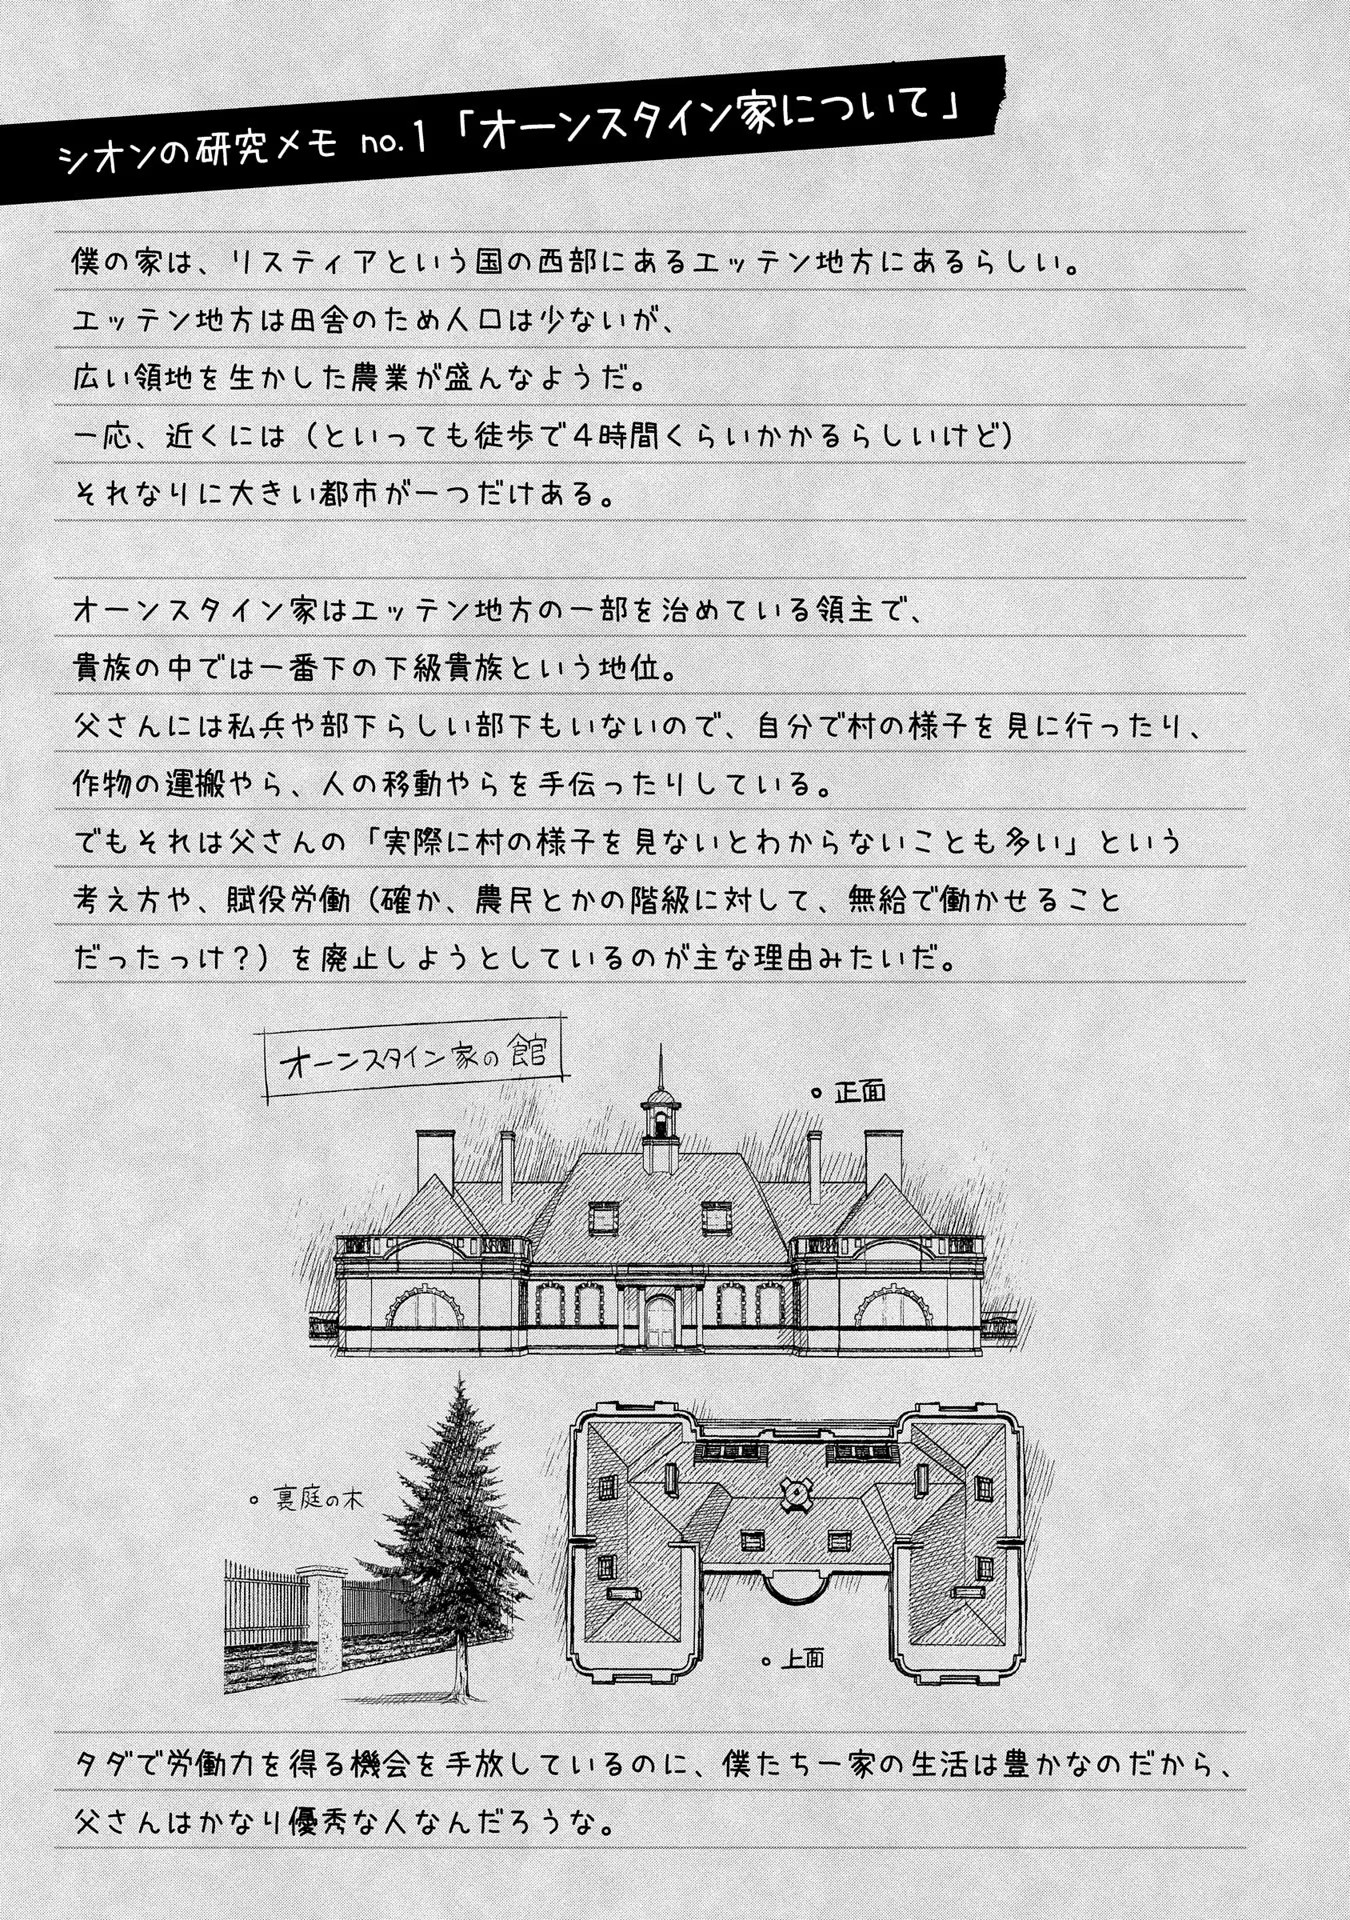 シオンの研究メモ no.1「オーンスタイン家について」
僕の家は、リスティアという国の西部にあるエッテン地方にあるらしい。
エッテン地方は田舎のため人口は少ないが、
広い領地を生かした農業が盛んなようだ。
一応、近くには（といっても徒歩で4時間くらいかかるらしいけど）
それなりに大きい都市が一つだけある。
オーンスタイン家はエッテン地方の一部を治めている領主で、
貴族の中では一番下の下級貴族という地位。
父さんには私兵や部下らしい部下もいないので、自分で村の様子を見に行ったり、
作物の運搬やら、人の移動やらを手伝ったりしている。
でもそれは父さんの「実際に村の様子を見ないとわからないことも多い」という
考え方や、賦役労働（確か、農民とかの階級に対して、無給で働かせること
だったっけ？）を廃止しようとしているのが主な理由みたいだ。
オーンスタイン家の館
正面
裏庭の木
上面
タダで労働力を得る機会を手放しているのに、僕たち一家の生活は豊かなのだから、
父さんはかなり優秀な人なんだろうな。